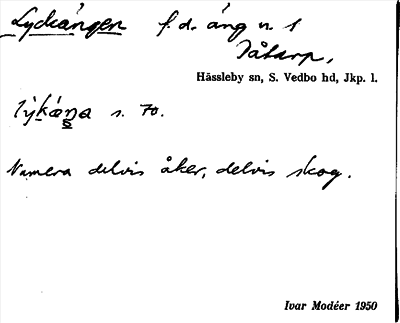 Lyckängen f. d. äng n. 1
Påtarp,
Hässleby sn, S. Vedbo hd, Jkp. l.
s. 70.
Numera delvis åker, delvis skog.
Ivar Modéer 1950